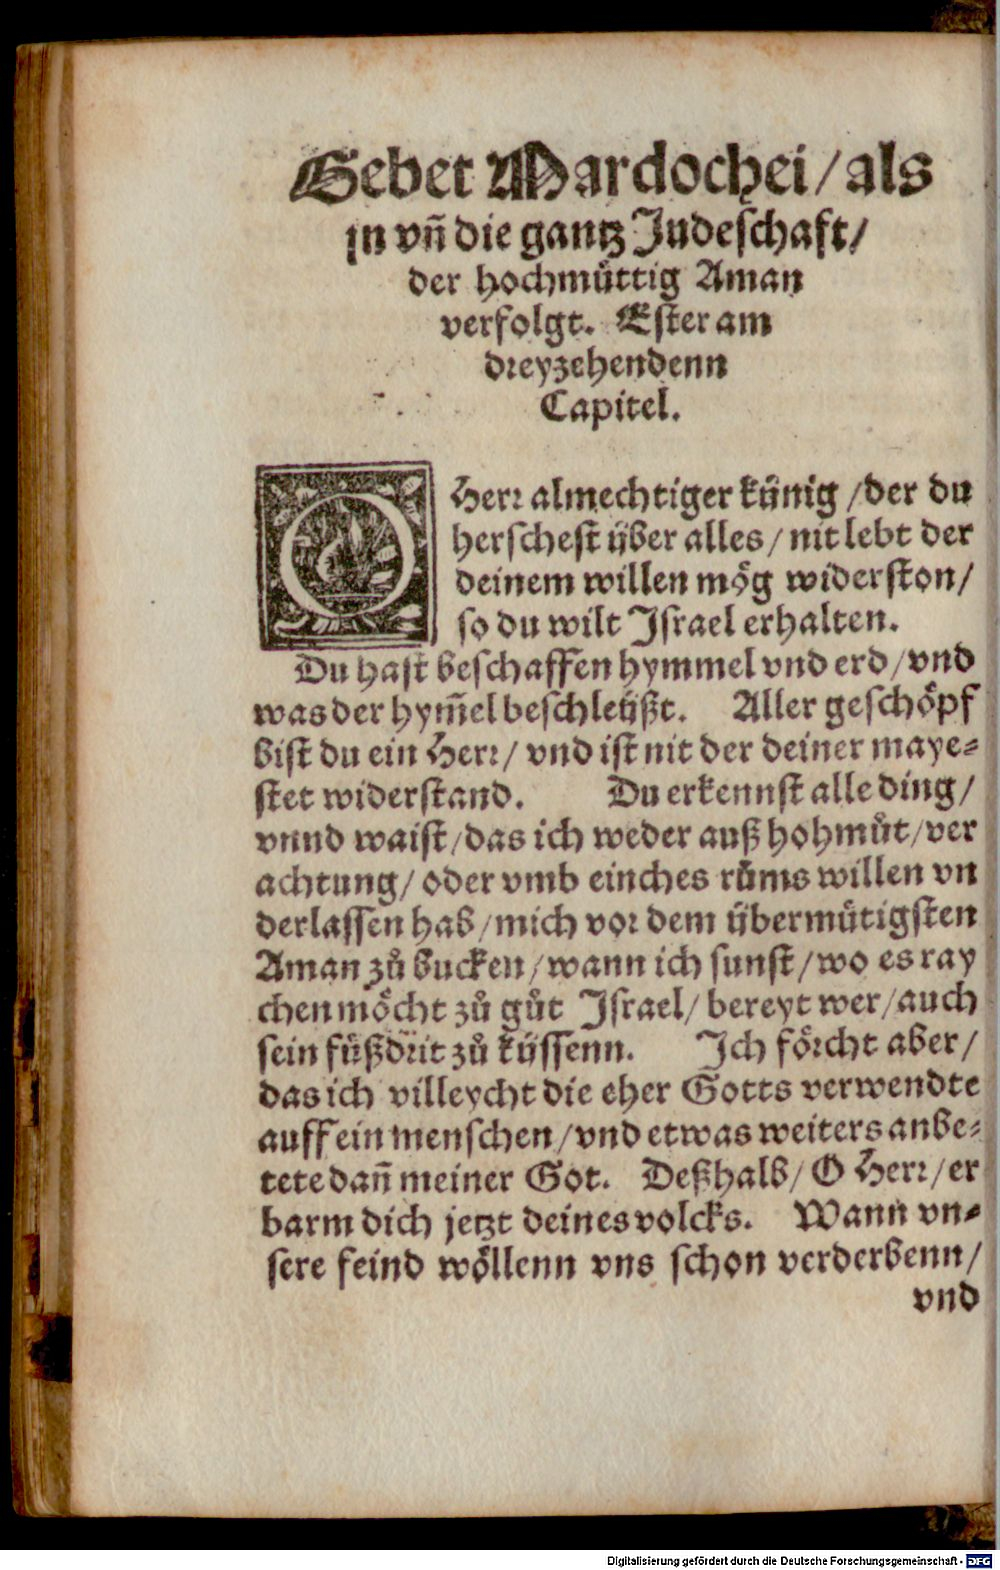 Gebet Mardochei/als
jn vñ die gantz Judeschaft/
der hochmüttig Aman
verfolgt. Ester am
dreyzehendenn
Capitel.
O Herr almechtiger künig/der du
herschest über alles/nit lebt der
deinem willen mög widerston/
so du wilt Israel erhalten.
Du hast beschaffen hymmel vnd erd/vnd
was der hym̃el beschleüßt. Aller geschöpf
bist du ein Herr/vnd ist nit der deiner maye-
stet widerstand. Du erkennst alle ding/
vnnd waist/das ich weder auß hohmůt/ver
achtung/oder vmb einches růms willen vn
derlassen hab/mich vor dem übermütigsten
Aman zů bucken/wann ich sunst/wo es ray
chen möcht zů gůt Israel/bereyt wer/auch
sein füßdrit zů küssenn. Ich förcht aber/
das ich villeycht die eher Gotts verwendte
auff ein menschen/vnd etwas weiters anbe-
tete dañ meiner Got. Deßhalb/O Herr/er
barm dich jetzt deines volcks. Wann vn-
sere feind wöllenn vns schon verderbenn/
vnd
Digitalisierung gefördert durch die Deutsche Forschungsgemeinschaft - DFG